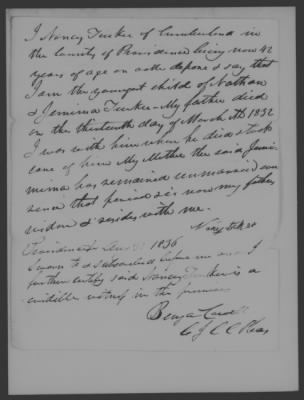 I Nancy Tucker of Cumberland in
the County of Providence being now 42
years of age on oath depose & say that
I am the youngest child of Nathan
& Jemima Tucker - My father died
on the thirteenth day of March AD 1832
I was with him when he died & took
care of him My Mother the said Jemi-
mima has remained unmarried ever
since that period & is now my father's
widow & resides with me.
Providence 1836
Sworn to & subscribed before me and I
further certify said Nancy Tucker is a
credible witness in the premises
Benja
C J C C Pleas